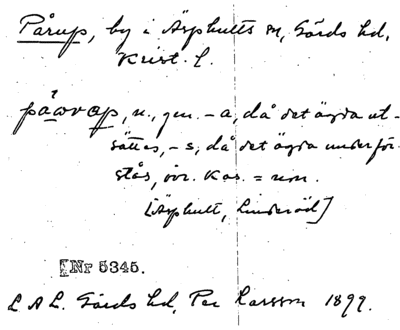 Pårup, by i Äsphults sn, Gärds hd,
Krist. l.
påwrap, n., gen. -a, då det ägda ut-
sättes, -s, då det ägda underför-
stås, övr. kas. = nom.
[Äsphult, Linderöd]
[Nr 5345.
L A L. Gärds hd, Per Larsson 1899.